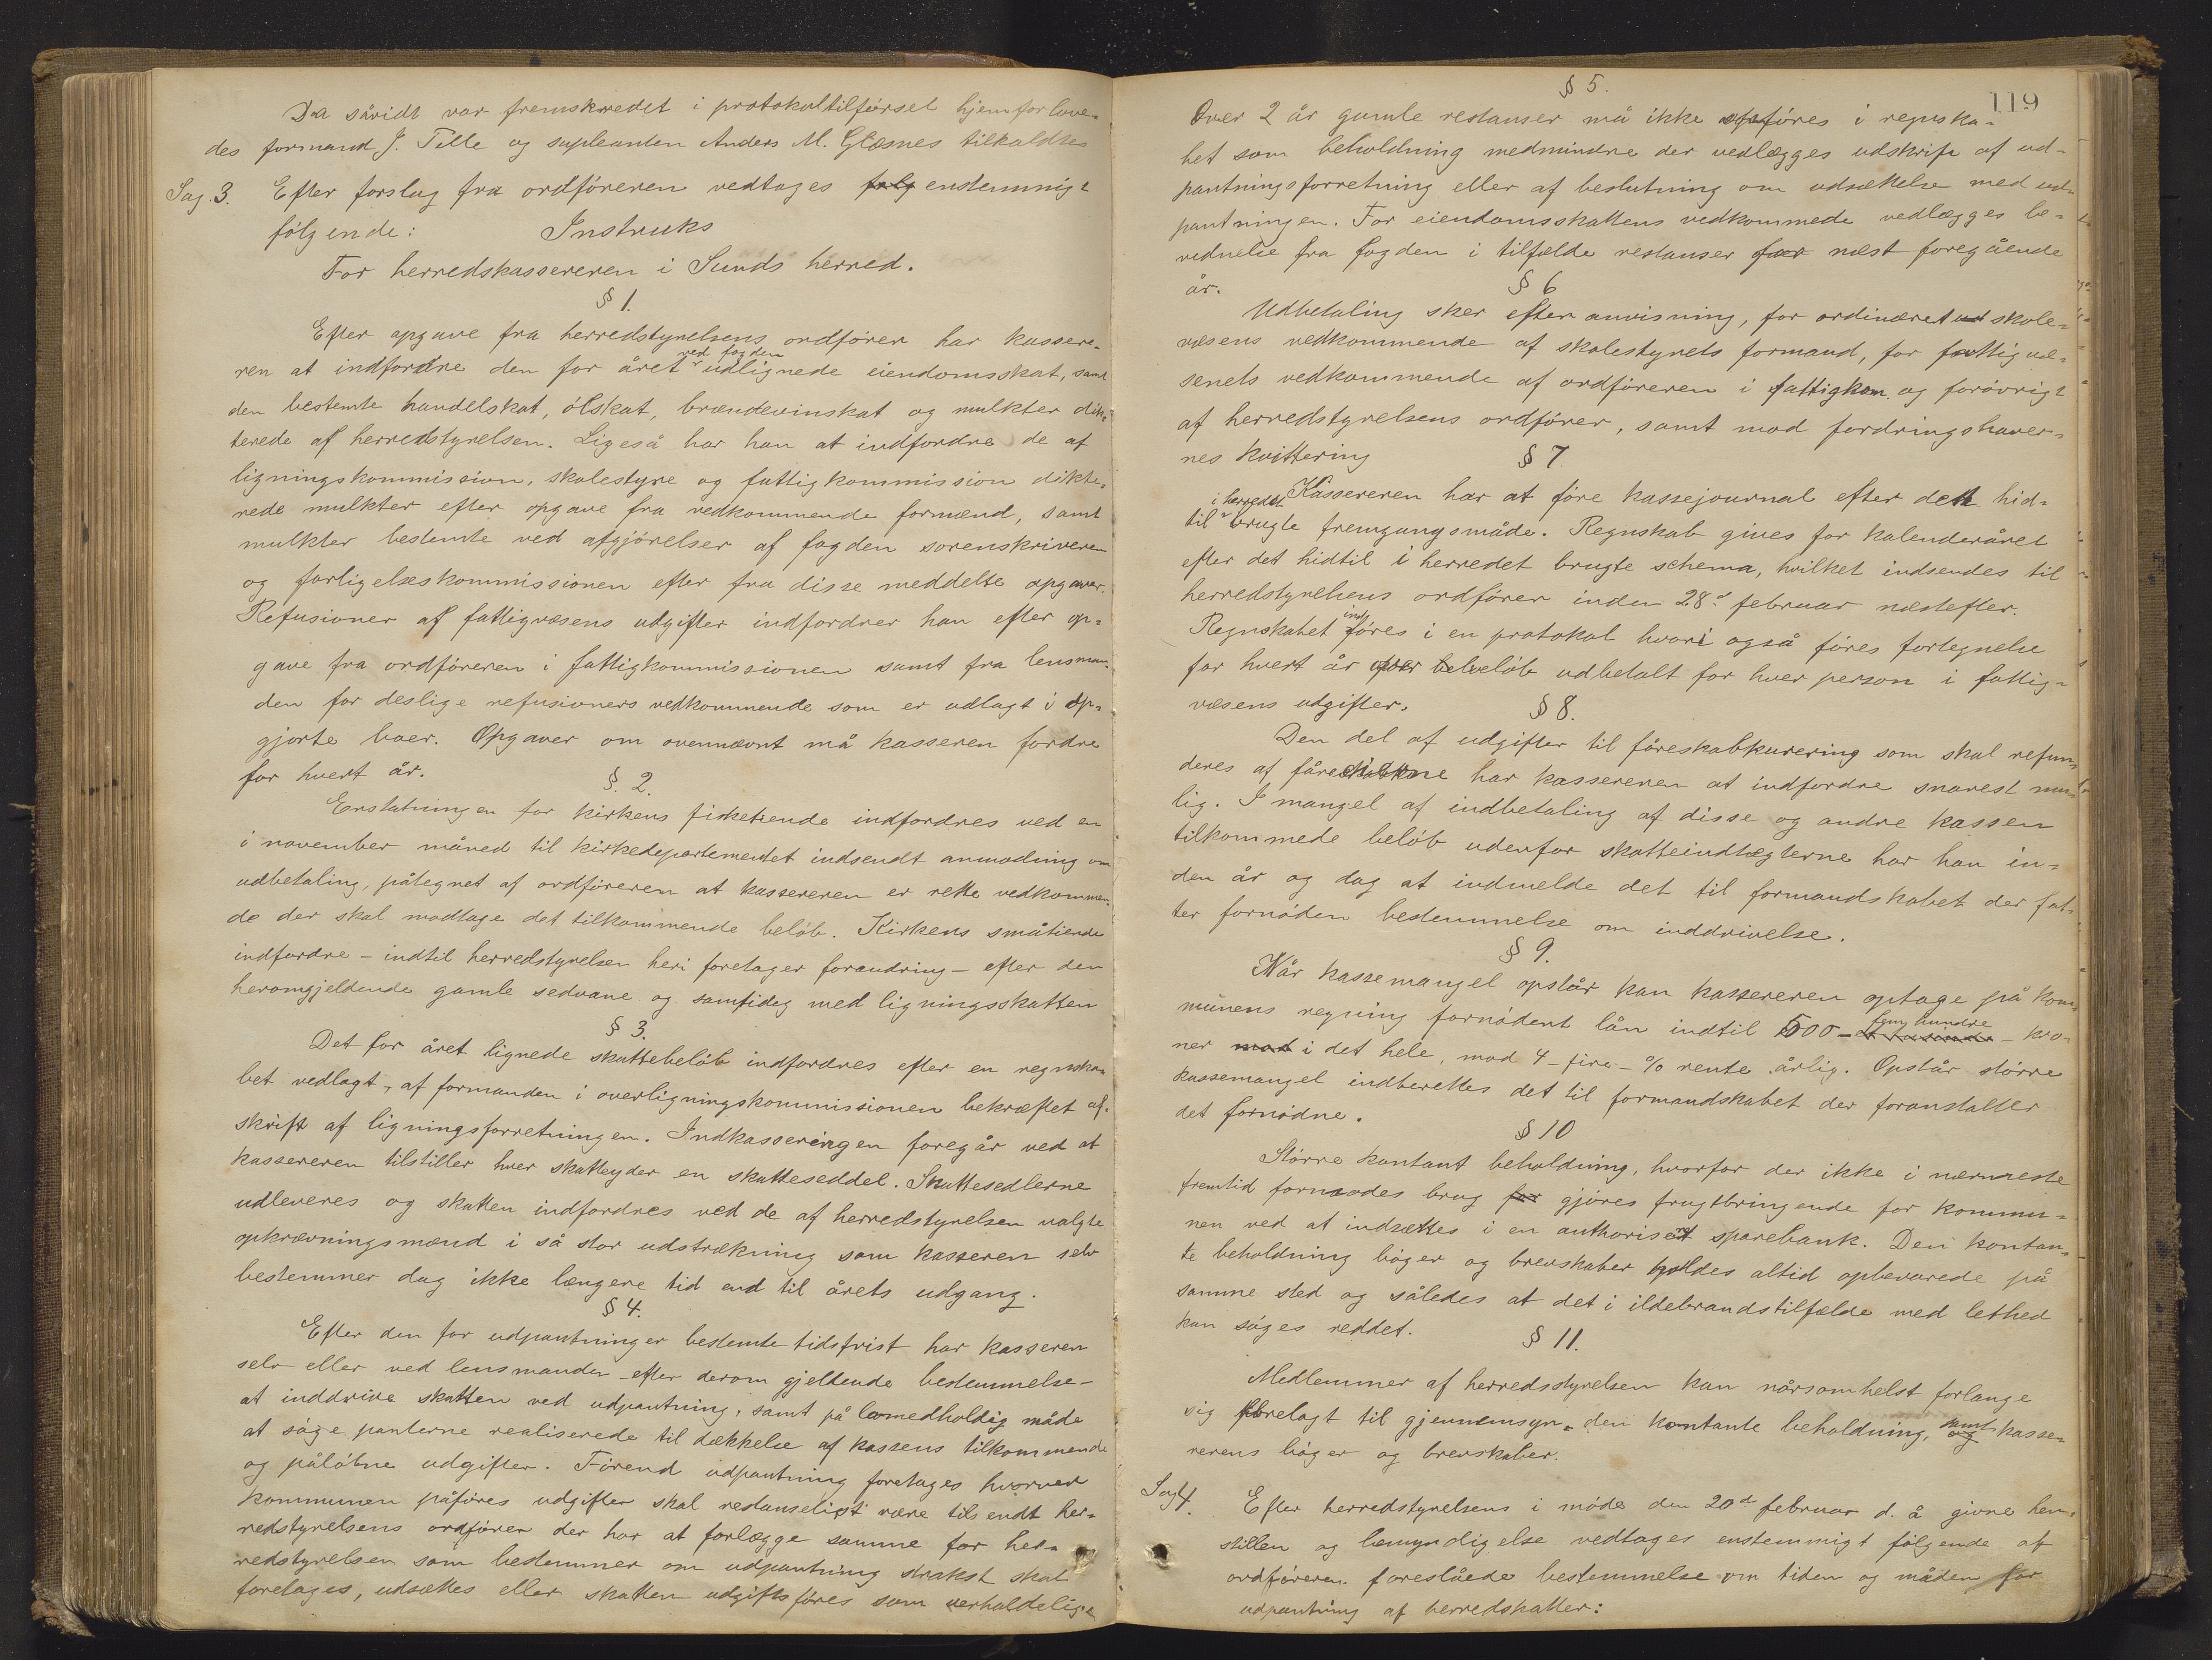 Da såvidt var fremskredet i protokoltilførsel hjemforlove-
des formand J. Telle og supleanten Anders M. Glæsnes tilkaldtes
Sag. 3. Efter forslag fra ordføreren vedtages enstemmigt
følgende: Instruks
For herredskassereren i Sunds herred.
§ 1.
Efter opgave fra herredstyrelsens ordfører har kassere-
ren at indfordre den for året ved fogden udlignede eiendomsskat, samt
den bestemte handelskat, ølskat, brændevinskat og mulkter dik-
terede af herredstyrelsen. Ligeså har han at indfordre de af
ligningskommission, skolestyre og fattigkommission dikte-
rede mulkter efter opgave fra vedkommende formænd, samt
mulkter bestemte ved afgjørelser af fogden sorenskriveren
og forligelseskommissionen efter fra disse meddelte opgaver.
Refusioner af fattigvæsens udgifter indfordrer han efter op-
gave fra ordføreren i fattigkommissionen samt fra lensman-
den for deslige refusioners vedkommende som er udlagt i op-
gjorte boer. Opgaver om ovennævnt må kasseren fordre
for hvert år.
§. 2.
Erstatningen for kirkens fisketiende indfordres ved en
i november måned til kirkedepartementet indsendt anmodning om
udbetaling, påtegnet af ordføreren at kassereren er rette vedkommen-
de der skal modtage det tilkommende beløb. Kirkens småtiende
indfordre - indtil herredstyrelsen heri foretager forandring - efter den
heromgjeldende gamle sedvane og samtideg med ligningsskatten
§ 3.
Det for året lignede skattebeløb indfordres efter en regnska-
bet vedlagt, af formanden i overligningskommissionen bekræftet af-
skrift af ligningsforretningen. Indkasseringen foregår ved at
kassereren tilstiller hver skatteyder en skatteseddel. Skattesedlerne
udleveres og skatten indfordres ved de af herredstyrelsen valgte
opkrævningsmænd i så stor udstrækning som kasseren selv
bestemmer dog ikke længere tid end til årets udgang.
§ 4.
Efter den for udpantninger bestemte tidsfrist har kasseren
selv eller ved lensmanden - efter derom gjeldende bestemmelse -
at inddrive skatten ved udpantning, samt på lovmedholdig måde
at søge panterne realiserede til dækkelse af kassens tilkommende
og påløbne udgifter. Førend udpantning foretages hvorved
kommunen påføres udgifter skal restanselist være tilsendt her-
redstyrelsens ordfører der har at forlægge samme for her-
redstyrelsen som bestemmer om udpantning strakst skal
foretages, udsættes eller skatten udgiftsføres som uerholdelige
119
§ 5.
Over 2 år gamle restanser må ikke opføres i regnska-
bet som beholdning medmindre der vedlægges udskrift af ud-
pantningsforretning eller af beslutning om udsættelse med ud-
pantningen. For eiendomsskattens vedkommede vedlægges be-
vidnelse fra fogden i tilfælde restanser for næst foregående
år.
§ 6
Udbetaling sker efter anvisning, for ordinæret skole-
væsens vedkommende af skolestyrets formand, for fattigvæ-
senets vedkommende af ordføreren i fattigkom. og forøvrigt
af herredstyrelsens ordfører, samt mod fordringshaver-
nes kvittering
§ 7.
Kassereren har at føre kassejournal efter den hid-
til i herredet brugte fremgangsmåde. Regnskab gives for kalenderåret
efter det hidtil i herredet brugte schema, hvilket indsendes til
herredstyrelsens ordfører inden 28d februar næstefter.
Regnskabet indføres i en protokol hvori også føres fortegnelse
for hvert år over beløb udbetalt for hver person i fattig-
væsens udgifter.
§ 8.
Den del af udgifter til føreskabkurering som skal refun-
deres af har kassereren at indfordre snarest mu-
lig. I mangel af indbetaling af disse og andre kassen
tilkommede beløb udenfor skatteindtægterne har han in-
den år og dag at indmelde det til formandskabet der fat-
ter fornøden bestemmelse om inddrivelse.
§ 9.
Når kassemangel opstår kan kassereren optage på kom-
munens regning fornødent lån indtil 500 - fem hundre - kro-
ner i det hele, mod 4 - fire - % rente årlig. Opstår større
kassemangel indberettes det til formandskabet der foranstalter
det fornødne.
§ 10
Større kontant beholdning, hvorfor der ikke i nærmeste
fremtid formodes brug gjøres frugtbringende for kommu-
nen ved at indsættes i en authoriseret sparebank. Den kontan-
te beholdning bøger og brevskaber holdes altid opbevarede på
samme sted og således at det i ildebrandstilfælde med lethed
kan søges reddet.
§ 11.
Medlemmer af herredsstyrelsen kan nårsomhelst forlange
sig forelagt til gjennemsyn - den kontante beholdning, samt kasse-
rerens bøger og brevskaber.
Sag 4. Efter herredstyrelsens i møde den 20d februar d. å givne hen-
stillen og bemyndigelse vedtages enstemmigt følgende af
ordføreren foreslåede bestemmelse om tiden og måden for
udpantning af herredskatter: